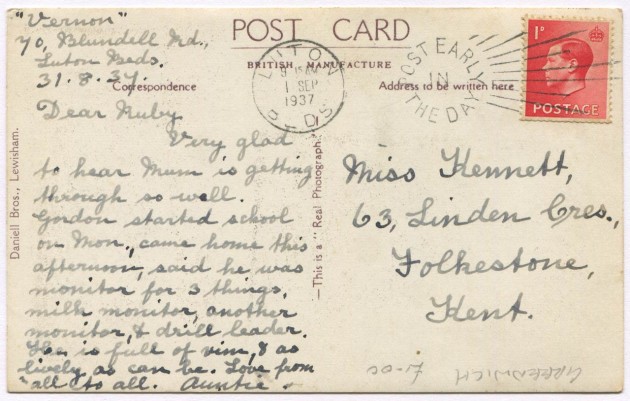 "Vernon"
70, Blundell Rd.,
Luton Beds.
31.8.37.
POST CARD
BRITISH MANUFACTURE
Correspondence
Address to be written here
LUTON
1 SEP
1937
BEDS
POST EARLY
IN
THE DAY
1D
POSTAGE
Dear Ruby
Very glad
to hear Mum is getting
through so well.
Gordon started school
on Mon., came home this
afternoon, said he was
monitor for 3 things,
milk monitor, another
monitor, & drill leader.
He is full of vim, & as
lively as can be. Love from
all to all. Auntie.
Miss Kennett,
63, Linden Cres.,
Folkestone,
Kent.
Daniell Bros., Lewisham.
—This is a "Real Photograph."
GREENWICH